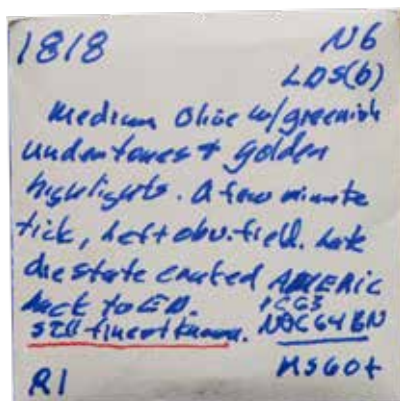 1818 N6
LDS(b)
Medium Olive w/greenish
undertones + golden
highlights. A few minute
tick, left obv. field. Late
die state AMERIC
back to ED. PCGS
still finest known. NGC64BN
R1 MS60+